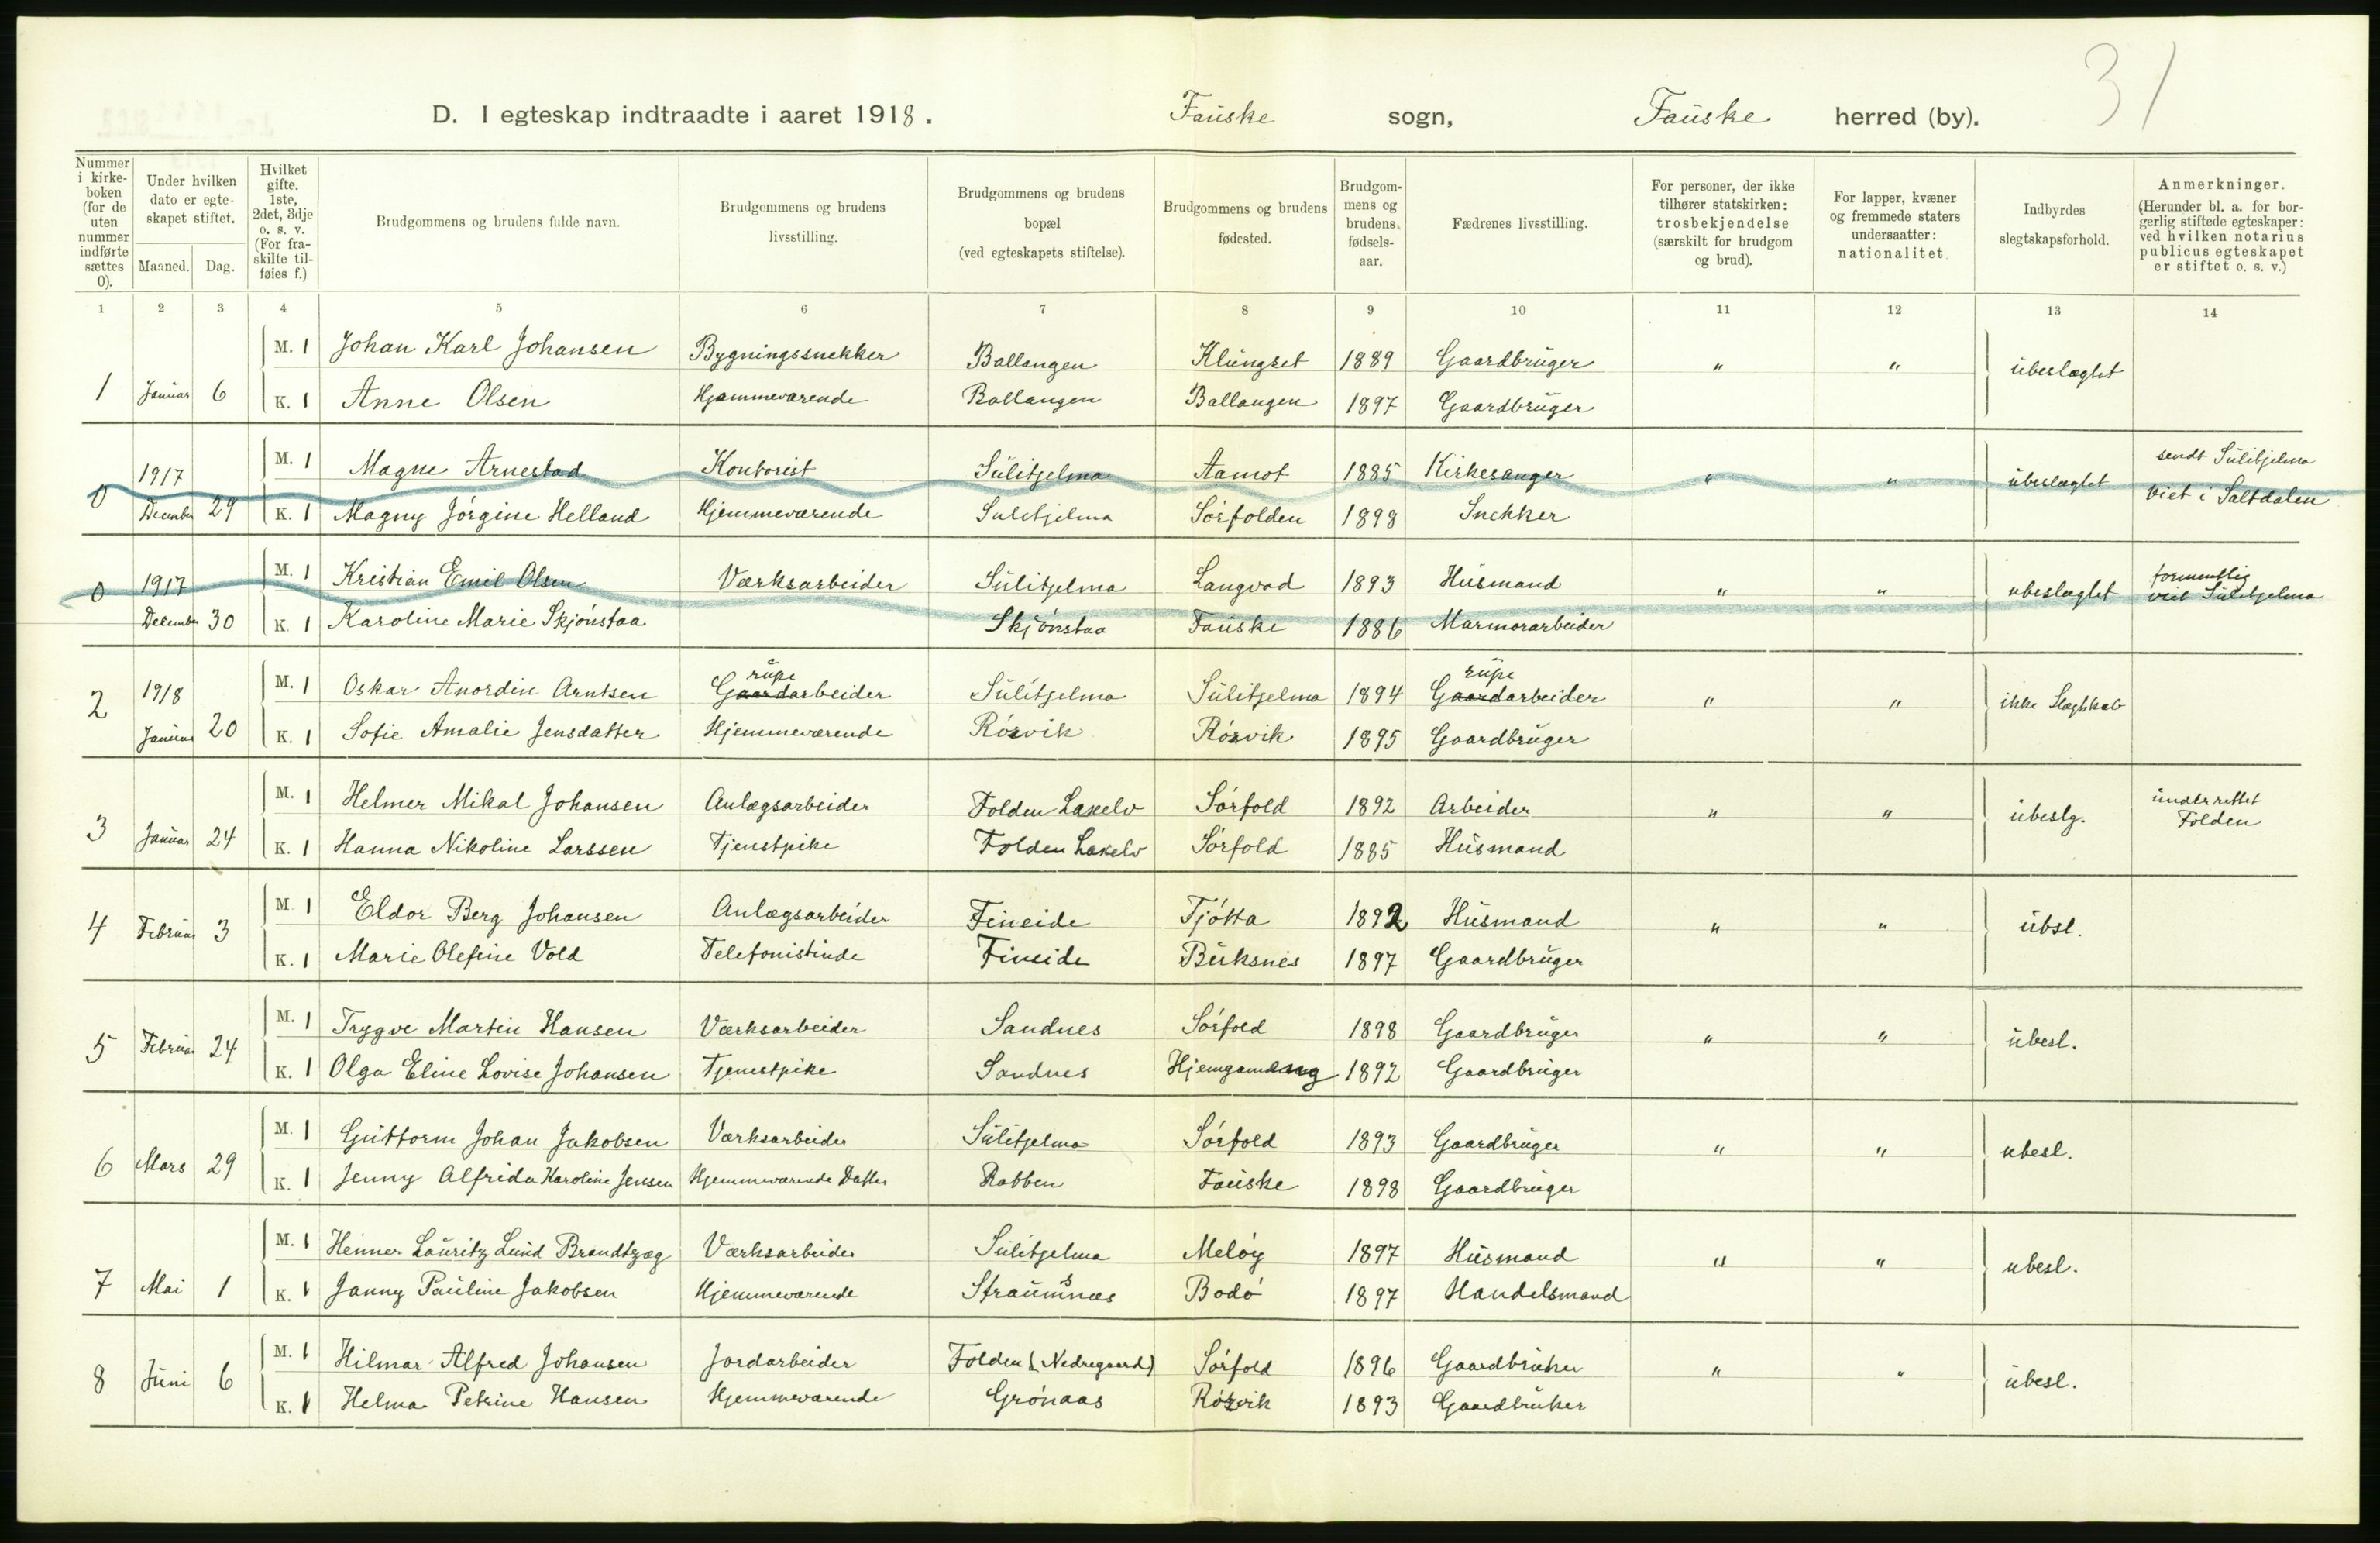 31
D. I egteskap indtraadte i aaret 1918. Fauske sogn, Fauske herred (by).
Nummer i kirkeboken (for de uten nummer indførte sættes 0). Under hvilken dato er egteskapet stiftet. Maaned. Dag. Hvilket gifte. 1ste, 2det, 3dje o. s. v. (For fraskilte tilføies f.) Brudgommens og brudens fulde navn. Brudgommens og brudens livsstilling. Brudgommens og brudens bopæl (ved egteskapets stiftelse). Brudgommens og brudens fødested. Brudgommens og brudens fødselsaar. Fædrenes livsstilling. For personer, der ikke tilhører statskirken: trosbekjendelse (særskilt for brudgom og brud). For lapper, kvæner og fremmede staters undersaatter: nationalitet. Indbyrdes slegtskapsforhold. Anmerkninger. (Herunder bl. a. for borgerlig stiftede egteskaper: ved hvilken notarius publicus egteskapet er stiftet o. s. v.)
1 2 3 4 5 6 7 8 9 10 11 12 13 14
M. 1 Johan Karl Johansen Bygningssnekker Ballangen Klungset 1889 Gaardbruger " " ubeslægtet
1 Januar 6 K. 1 Anne Olsen Hjemmeværende Ballangen Ballangen 1897 Gaardbruger
1917 M. 1 Magne Arnestad Kontorist Sulitjelma Aamot 1885 Kirkesanger " " ubeslægtet sendt Sulitjelma
0 December 29 K. 1 Magny Jørgine Helland Hjemmeværende Sulitjelma Sørfolden 1898 Snekker viet i Saltdalen
0 1917 M. 1 Kristian Emil Olsen Værksarbeider Sulitjelma Langvad 1893 Husmand " " ubeslægtet formentlig viet Sulitjelma
December 30 K. 1 Karoline Marie Skjønstaa Skjønstaa Fauske 1886 Marmorarbeider
2 1918 M. 1 Oskar Anordin Arntsen Gaardarbeider rube Sulitjelma Sulitjelma 1894 Gaardarbeider rube " " ikke Slægtskab
Januar 20 K. 1 Sofie Amalie Jensdatter Hjemmeværende Røsvik Røsvik 1895 Gaardbruger
M. 1 Helmer Mikal Johansen Anlægsarbeider Folden Laxelv Sørfold 1892 Arbeider " " ubeslg. underrettet Folden
3 Januar 24 K. 1 Hanna Nikoline Larssen Tjenstpike Folden Laxelv Sørfold 1885 Husmand
M. 1 Eldor Berg Johansen Anlægsarbeider Fineide Tjøtta 1892 Husmand " " übsl.
4 Februar 3 K. 1 Marie Olefine Vold Telefonistinde Fineide Buksnes 1897 Gaardbruger
M. 1 Trygve Martin Hansen Værksarbeider Sandnes Sørfold 1898 Gaardbruger " " ubesl.
5 Februar 24 K. 1 Olga Eline Lovise Johansen Tjenestpike Sandnes 1892 Gaardbruger
M. 1 Guttorm Johan Jakobsen Værksarbeider Sulitjelma Sørfold 1893 Gaardbruger " " ubesl.
6 Mars 29 K. 1 Jenny Alfrida Karoline Jensen Hjemmeværende Datter Rabben Fauske 1898 Gaardbruger
M. 1 Henner Lauritz Lund Brandtzæg Værksarbeider Sulitjelma Meløy 1897 Husmand " " ubesl.
7 Mai 1 K. 1 Janny Pauline Jakobsen Hjemmeværende Straumsnes Bodø 1897 Handelsmand
M. 1 Hilmar Alfred Johansen Jordarbeider Folden (Nedregaard) Sørfold 1896 Gaardbruker " " ubesl.
8 Juni 6 K. 1 Helma Petrine Hansen Hjemmeværende Grønaas Røsvik 1893 Gaardbruker